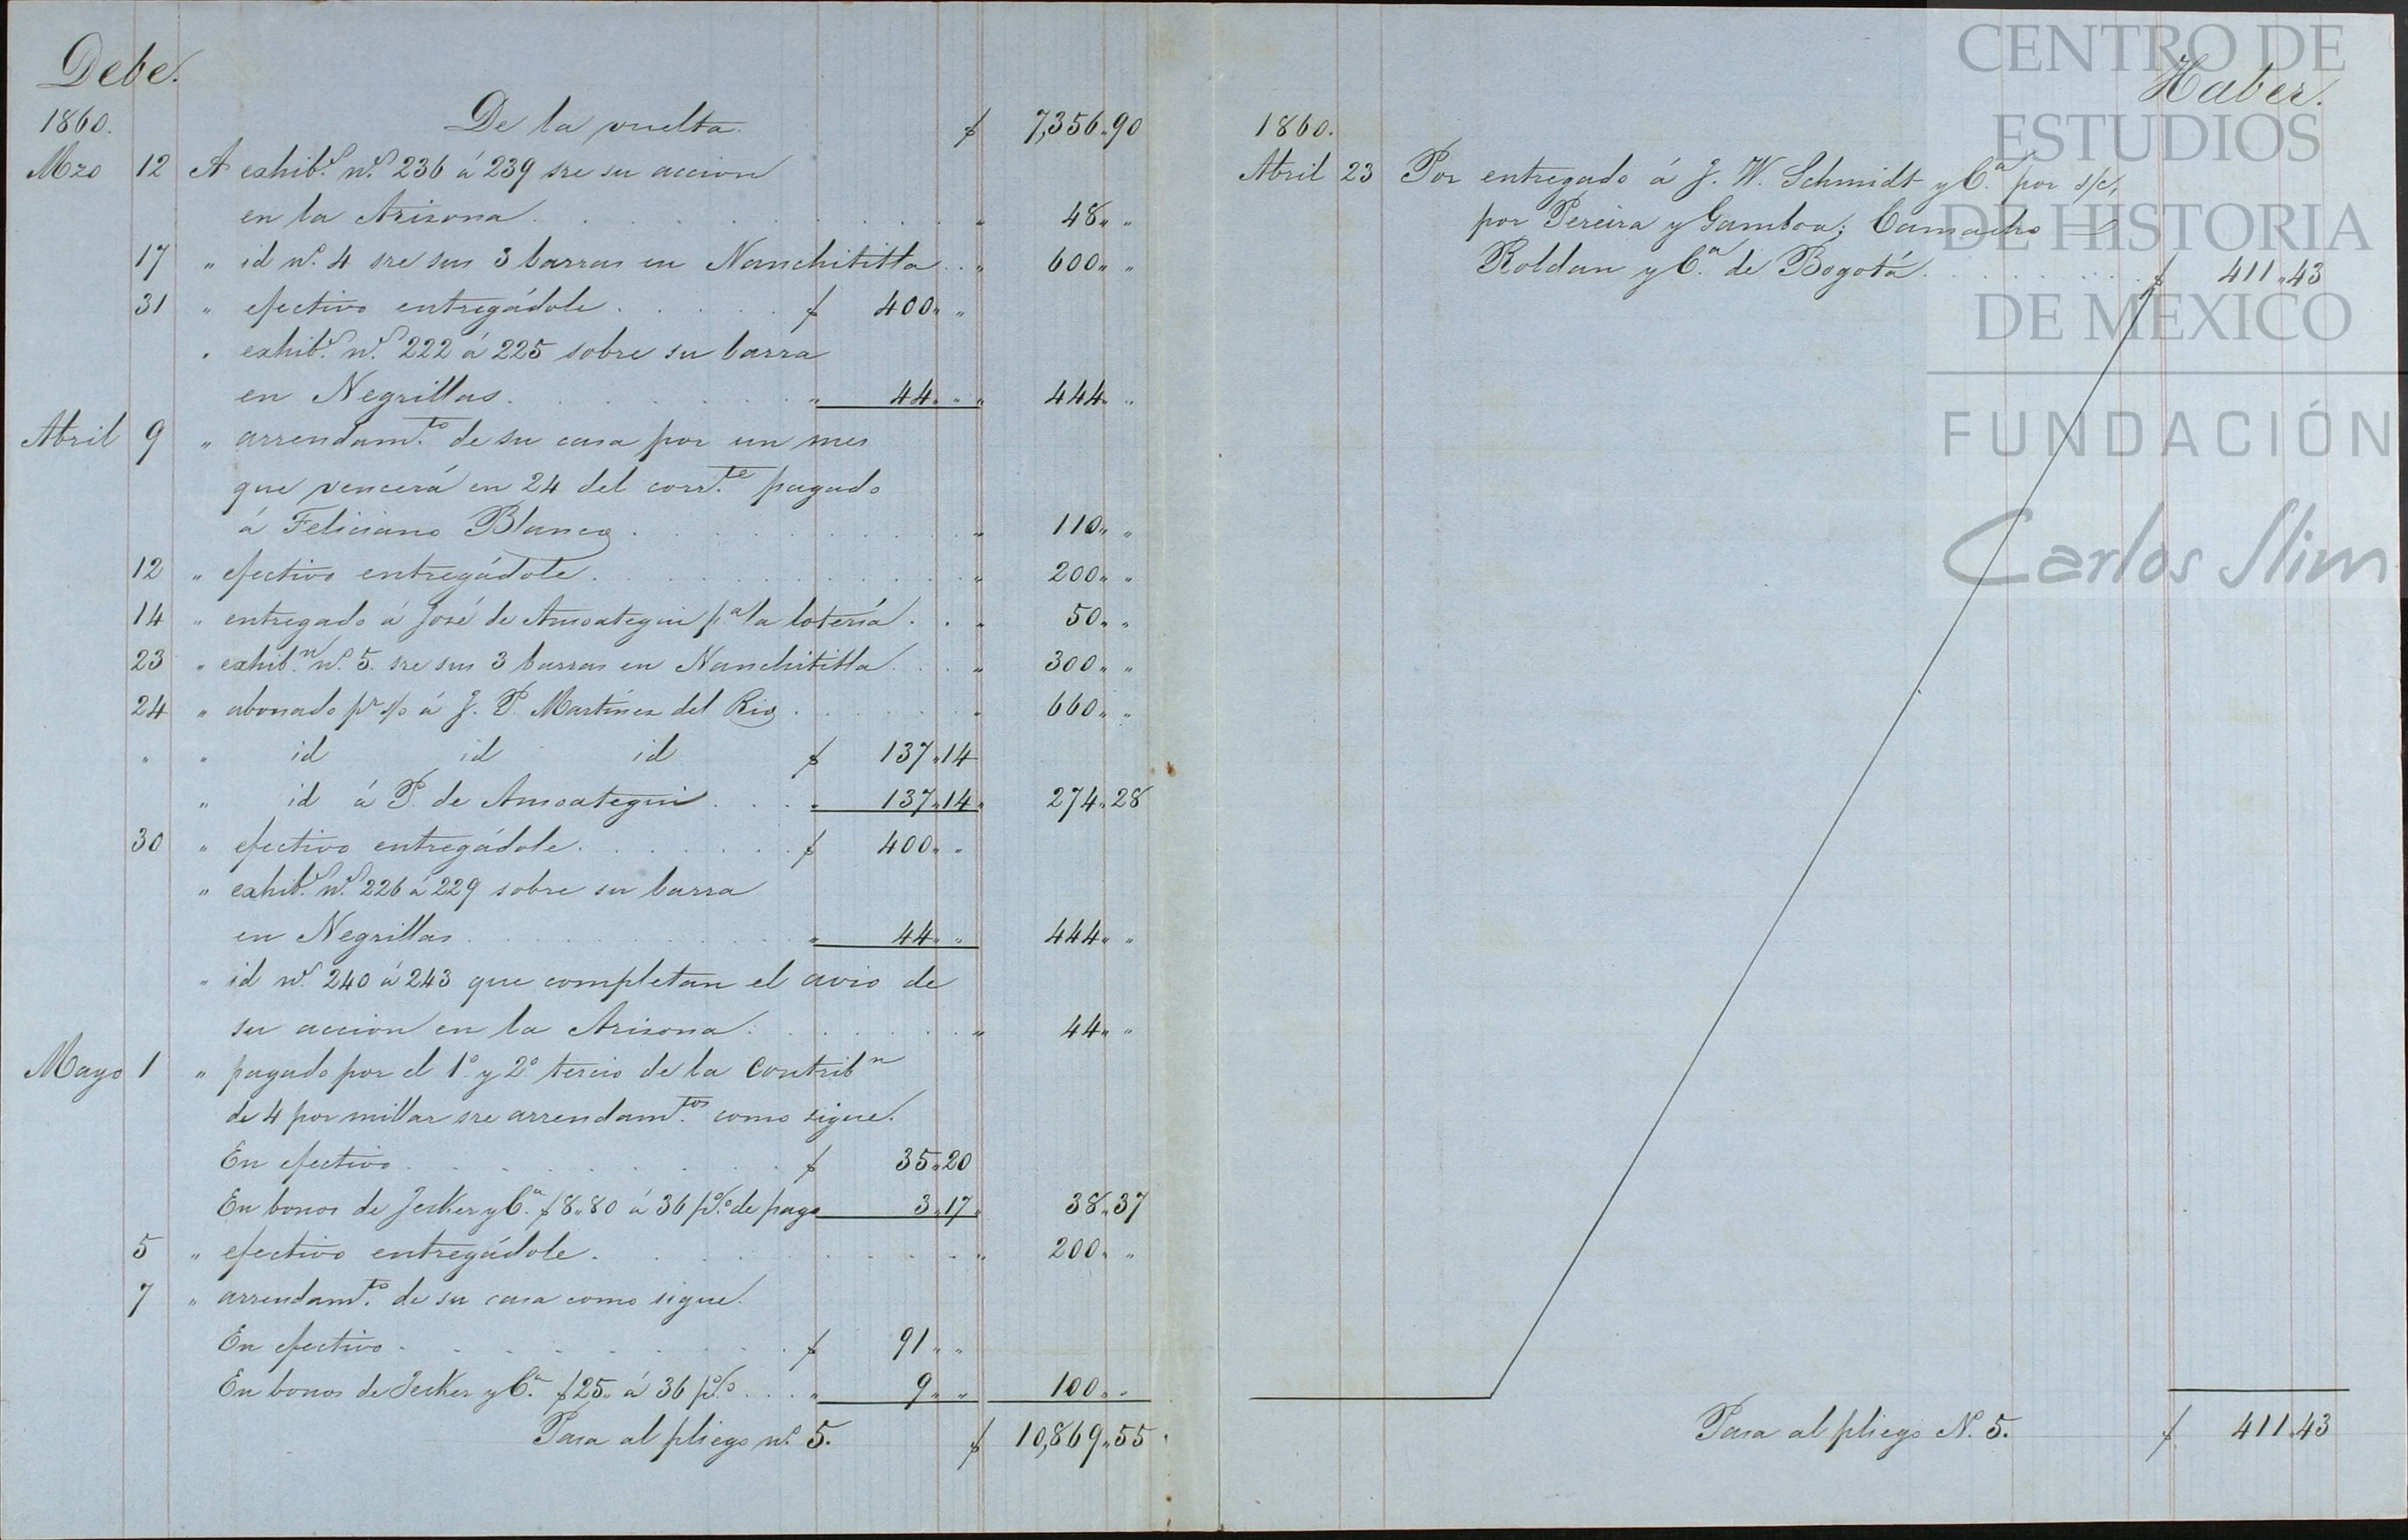 Debe.
1860. De la vuelta. $ 7,356.,90
Mzo 12 A exhib.s n.s 236 á 239 sre su accion
en la Arizona . . . . . . . . . . „ 48„ „
17 „ id n.o 4 sre sus 3 barras en Nanchititla . . „ 600„ „
31 „ efectivo entregádole . . . . . $ 400„ „
„ exhib.s n.s 222 á 225 sobre su barra
en Negrillas . . . . . . . . „ 44„ „ „ 444„ „
Abril 9 „ arrendam.to de su casa por un mes
que vencerá en 24 del corr.te pagado
á Feliciano Blanco . . . . . . . . . . „ 110„ „
12 „ efectivo entregádole . . . . . . . . . . „ 200„ „
14 „ entregado á José de Ansoategui p.a la lotería . . „ 50„ „
23 „ exhib.n n.o 5. sre sus 3 barras en Nanchititla . . . „ 300„ „
24 „ abonado p.r s/o á J. P. Martínez del Rio . . . . . . „ 660„ „
„ „ id id id $ 137„14
„ id á P. de Ansoategui . . . „ 137„14 „ 274„28
30 „ efectivo entregádole . . . . . . . $ 400„ „
„ exhib.s n.s 226 á 229 sobre su barra
en Negrillas . . . . . . . . . . „ 44„ „ 444„ „
„ id n.s 240 á 243 que completan el avio de
su accion en la Arizona . . . . . . . . „ 44„ „
Mayo 1 „ pagado por el 1.o y 2.o tercio de la Contrib.n
de 4 por millar sre arrendam.tos como sigue.
En efectivo . . . . . . . . . . $ 35„20
En bonos de Jecker y C.a $8„80 á 36 p% de pago 3„17 „ 38„37
5 „ efectivo entregádole . . . . . . . . . . „ 200„ „
7 „ arrendam.to de su casa como sigue.
En efectivo . . . . . . . . . . $ 91„ „
En bonos de Jecker y C.a $25„ á 36 p% . . . „ 9„ „ 100„ „
Pasa al pliego n.o 5. $ 10,869„55
Haber.
1860.
Abril 23 Por entregado á J. W. Schmidt y C.a por s/c,
por Pereira y Gamboa; Camacho
Roldan y C.a de Bogotá . . . . . . . . $ 411„43
Pasa al pliego N. 5. $ 411„43
CENTRO DE
ESTUDIOS
DE HISTORIA
DE MEXICO
FUNDACIÓN
Carlos Slim